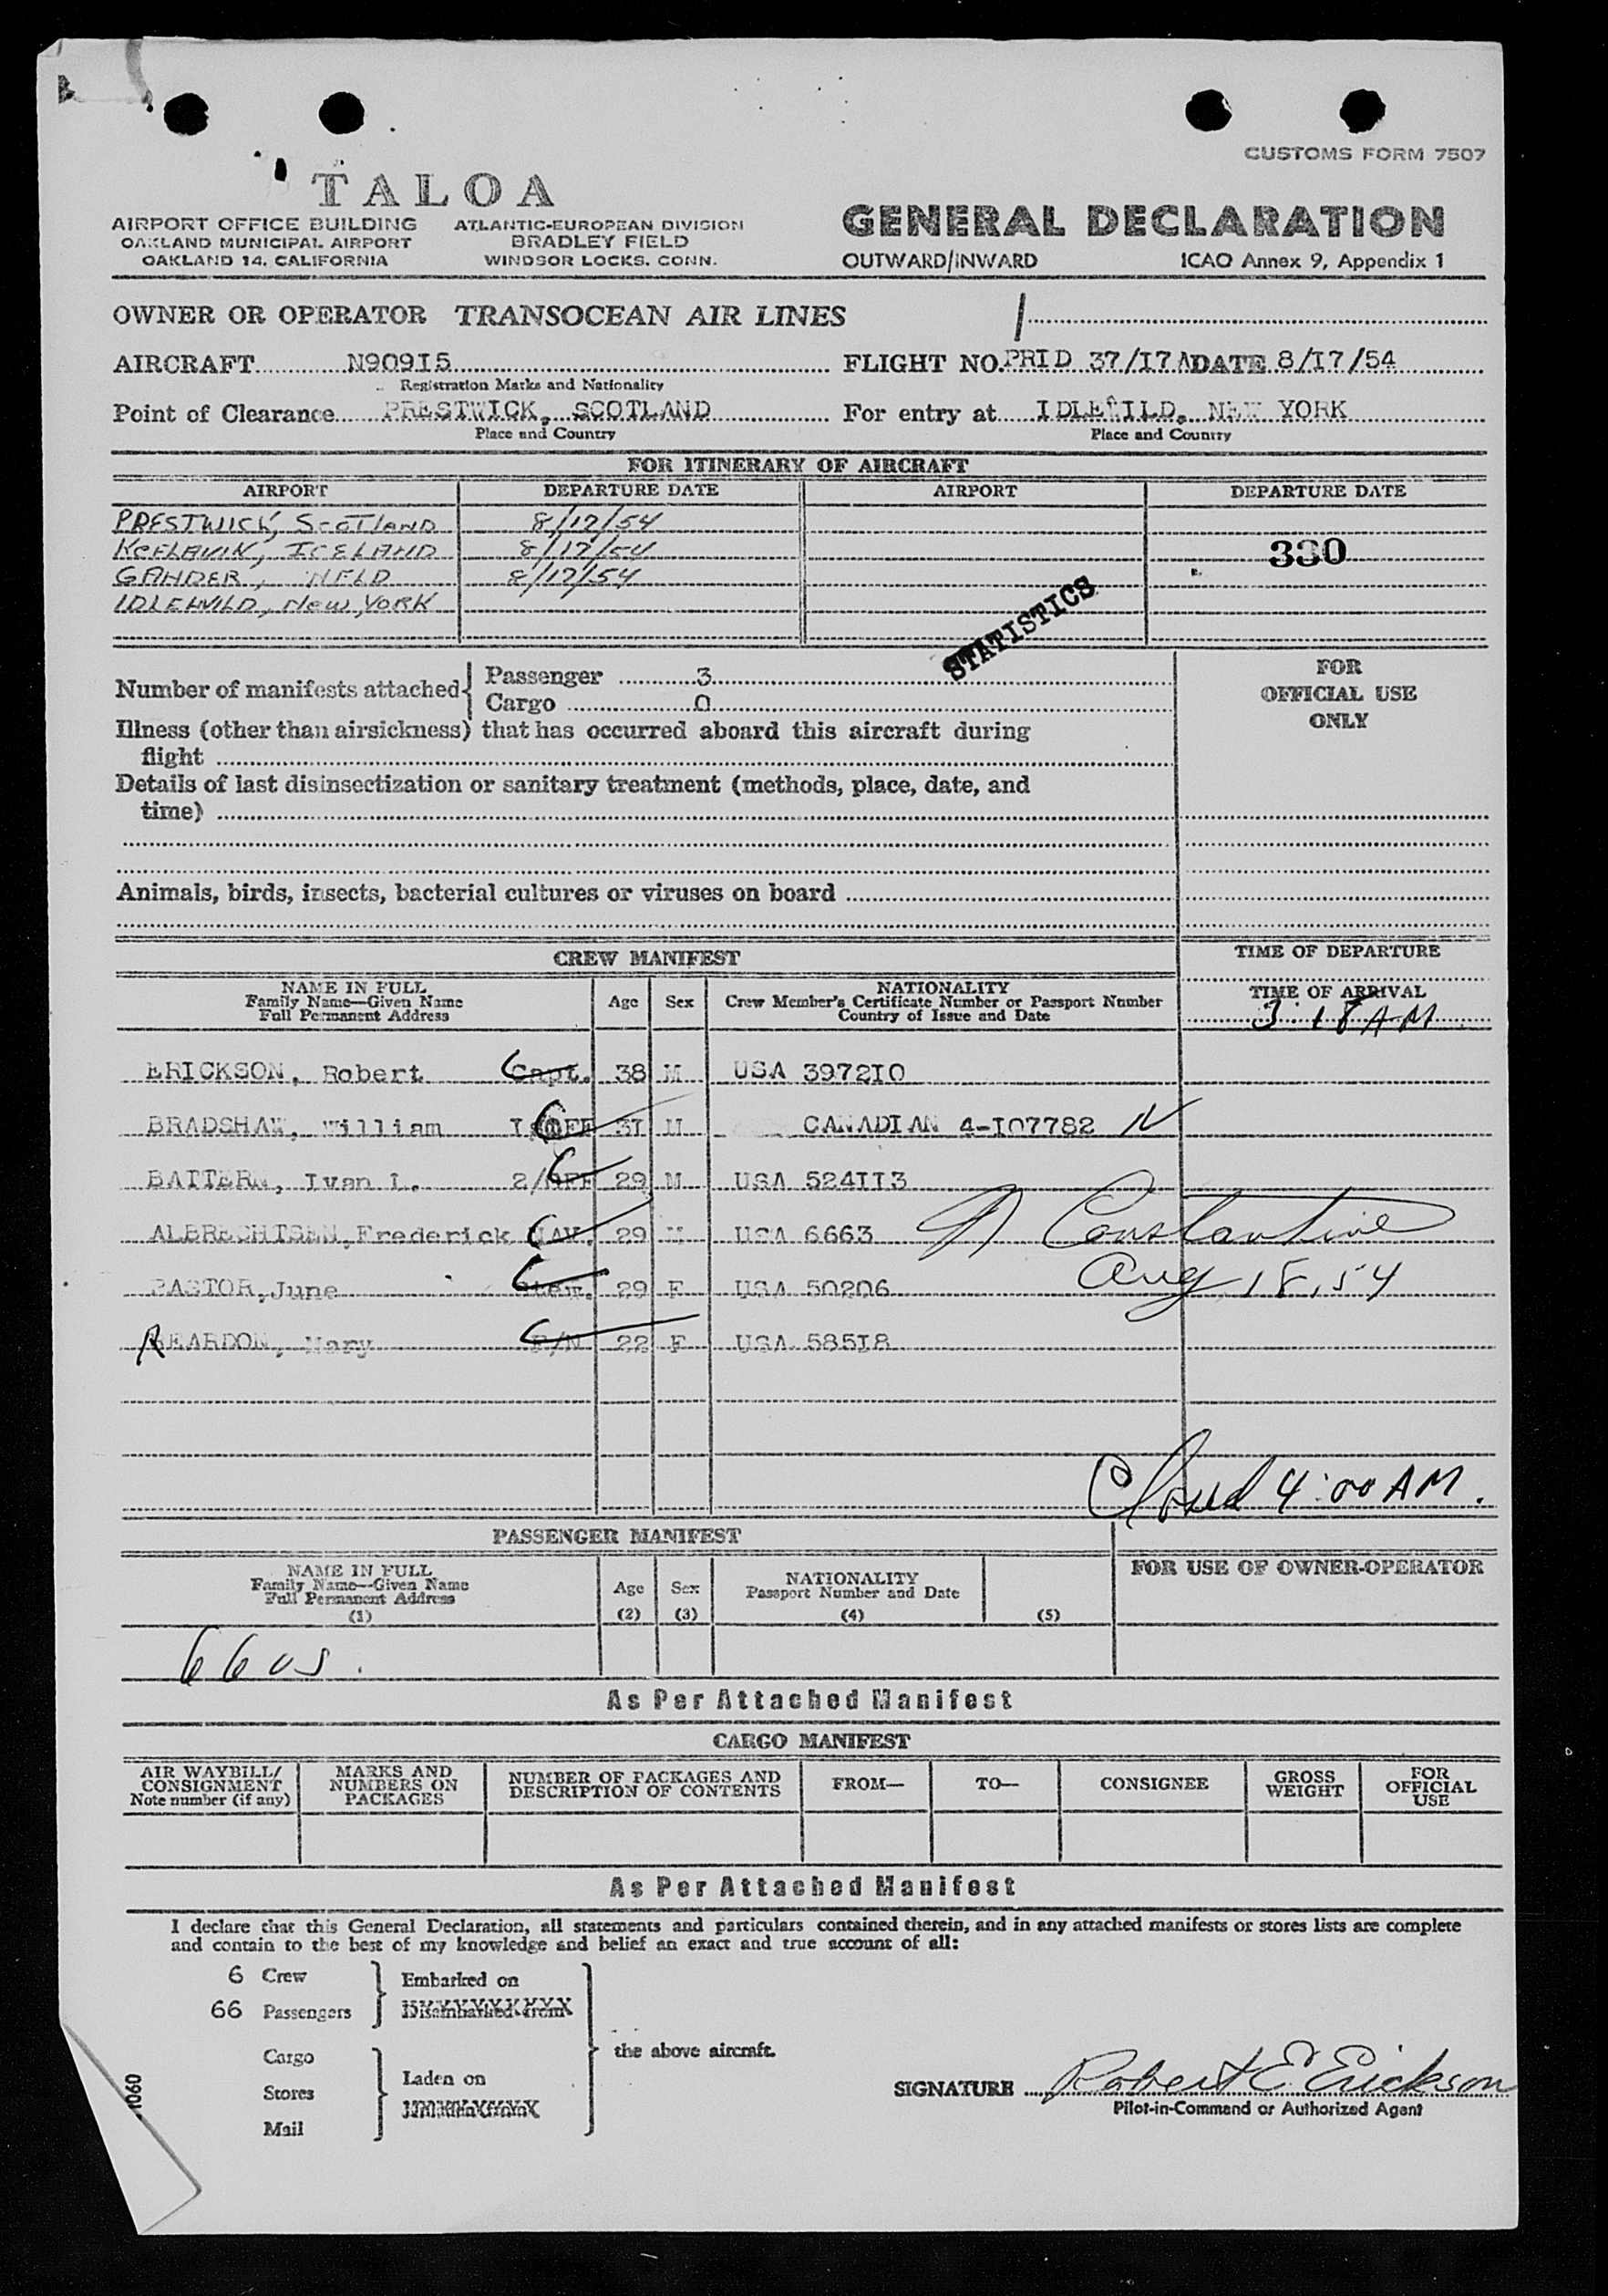 CUSTOMS FORM 7507
TALOA
AIRPORT OFFICE BUILDING
OAKLAND MUNICIPAL AIRPORT
OAKLAND 14, CALIFORNIA
ATLANTIC-EUROPEAN DIVISION
BRADLEY FIELD
WINDSOR LOCKS, CONN.
GENERAL DECLARATION
OUTWARD/INWARD ICAO Annex 9, Appendix 1
OWNER OR OPERATOR TRANSOCEAN AIR LINES
AIRCRAFT N909I5 FLIGHT NO. PRID 37/I7A DATE 8/I7/54
Registration Marks and Nationality
Point of Clearance PRESTWICK, SCOTLAND For entry at IDLEWILD, NEW YORK
Place and Country Place and Country
FOR ITINERARY OF AIRCRAFT
AIRPORT DEPARTURE DATE AIRPORT DEPARTURE DATE
PRESTWICK, SCOTLAND 8/17/54
KEFLAVIK, ICELAND 8/17/54
330
GANDER, NFLD 8/17/54
IDLEWILD, New York
STATISTICS
Number of manifests attached
Passenger 3
Cargo 0
FOR
OFFICIAL USE
ONLY
Illness (other than airsickness) that has occurred aboard this aircraft during
flight
Details of last disinsectization or sanitary treatment (methods, place, date, and
time)
Animals, birds, insects, bacterial cultures or viruses on board
CREW MANIFEST
TIME OF DEPARTURE
NAME IN FULL
Family Name—Given Name
Full Permanent Address
Age Sex
NATIONALITY
Crew Member's Certificate Number or Passport Number
Country of Issue and Date
TIME OF ARRIVAL
3:18 AM
ERICKSON, Robert Capt. 38 M USA 3972I0
BRADSHAW, William 3I M CANADIAN 4-I07782 N
Ivan L. 2/OFF 29 M USA 524II3
ALBRECHTSEN, Frederick NAV. 29 M USA 6663
N Constantine
PASTOR, June Stew. 29 F USA 50206
Aug 18, 54
REARDON, Mary P/N 22 F USA 585I8
4:00 AM.
PASSENGER MANIFEST
FOR USE OF OWNER-OPERATOR
NAME IN FULL
Family Name—Given Name
Full Permanent Address
(1)
Age
(2)
Sex
(3)
NATIONALITY
Passport Number and Date
(4)
(5)
66 US.
As Per Attached Manifest
CARGO MANIFEST
AIR WAYBILL/
CONSIGNMENT
Note number (if any)
MARKS AND
NUMBERS ON
PACKAGES
NUMBER OF PACKAGES AND
DESCRIPTION OF CONTENTS
FROM—
TO—
CONSIGNEE
GROSS
WEIGHT
FOR
OFFICIAL
USE
As Per Attached Manifest
I declare that this General Declaration, all statements and particulars contained therein, and in any attached manifests or stores lists are complete
and contain to the best of my knowledge and belief an exact and true account of all:
6 Crew
66 Passengers
Embarked on
Disembarked from
Cargo
Stores
Mail
Laden on
the above aircraft.
SIGNATURE Robert E. Erickson
Pilot-in-Command or Authorized Agent
1060